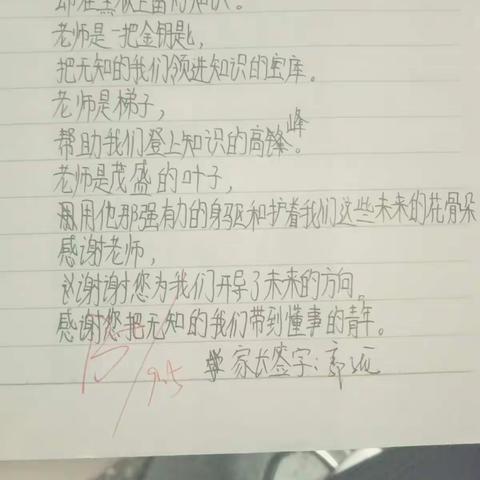 老师是一把金钥匙，
把无知的我们领进知识的宝库。
老师是梯子，
帮助我们登上知识的高峰。
老师是茂盛的叶子，
用他那强有力的身驱和护着我们这些未来的花骨朵
感谢老师，
谢谢您为我们开导了未来的方向。
感谢您把无知的我们带到懂事的青年。
家长签字：